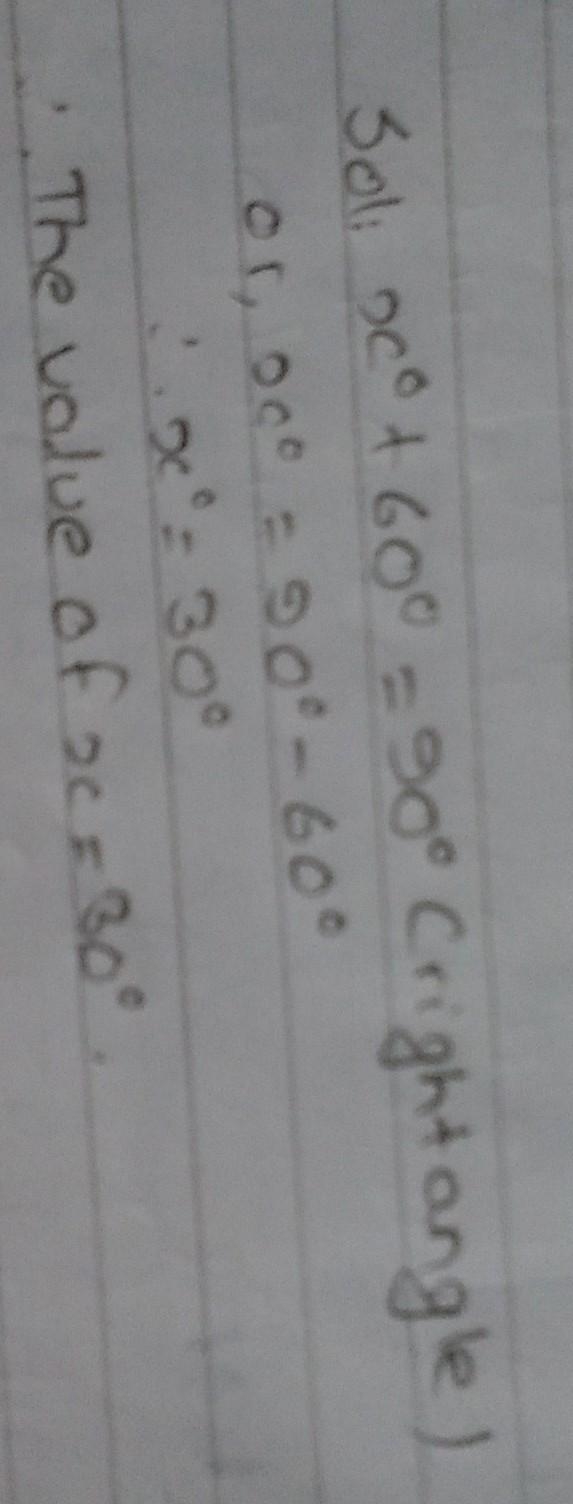 Sol: x° + 60° = 90° (right angle)
or, x° = 90° - 60°
∴ x° = 30°
∴ The value of x = 30°.